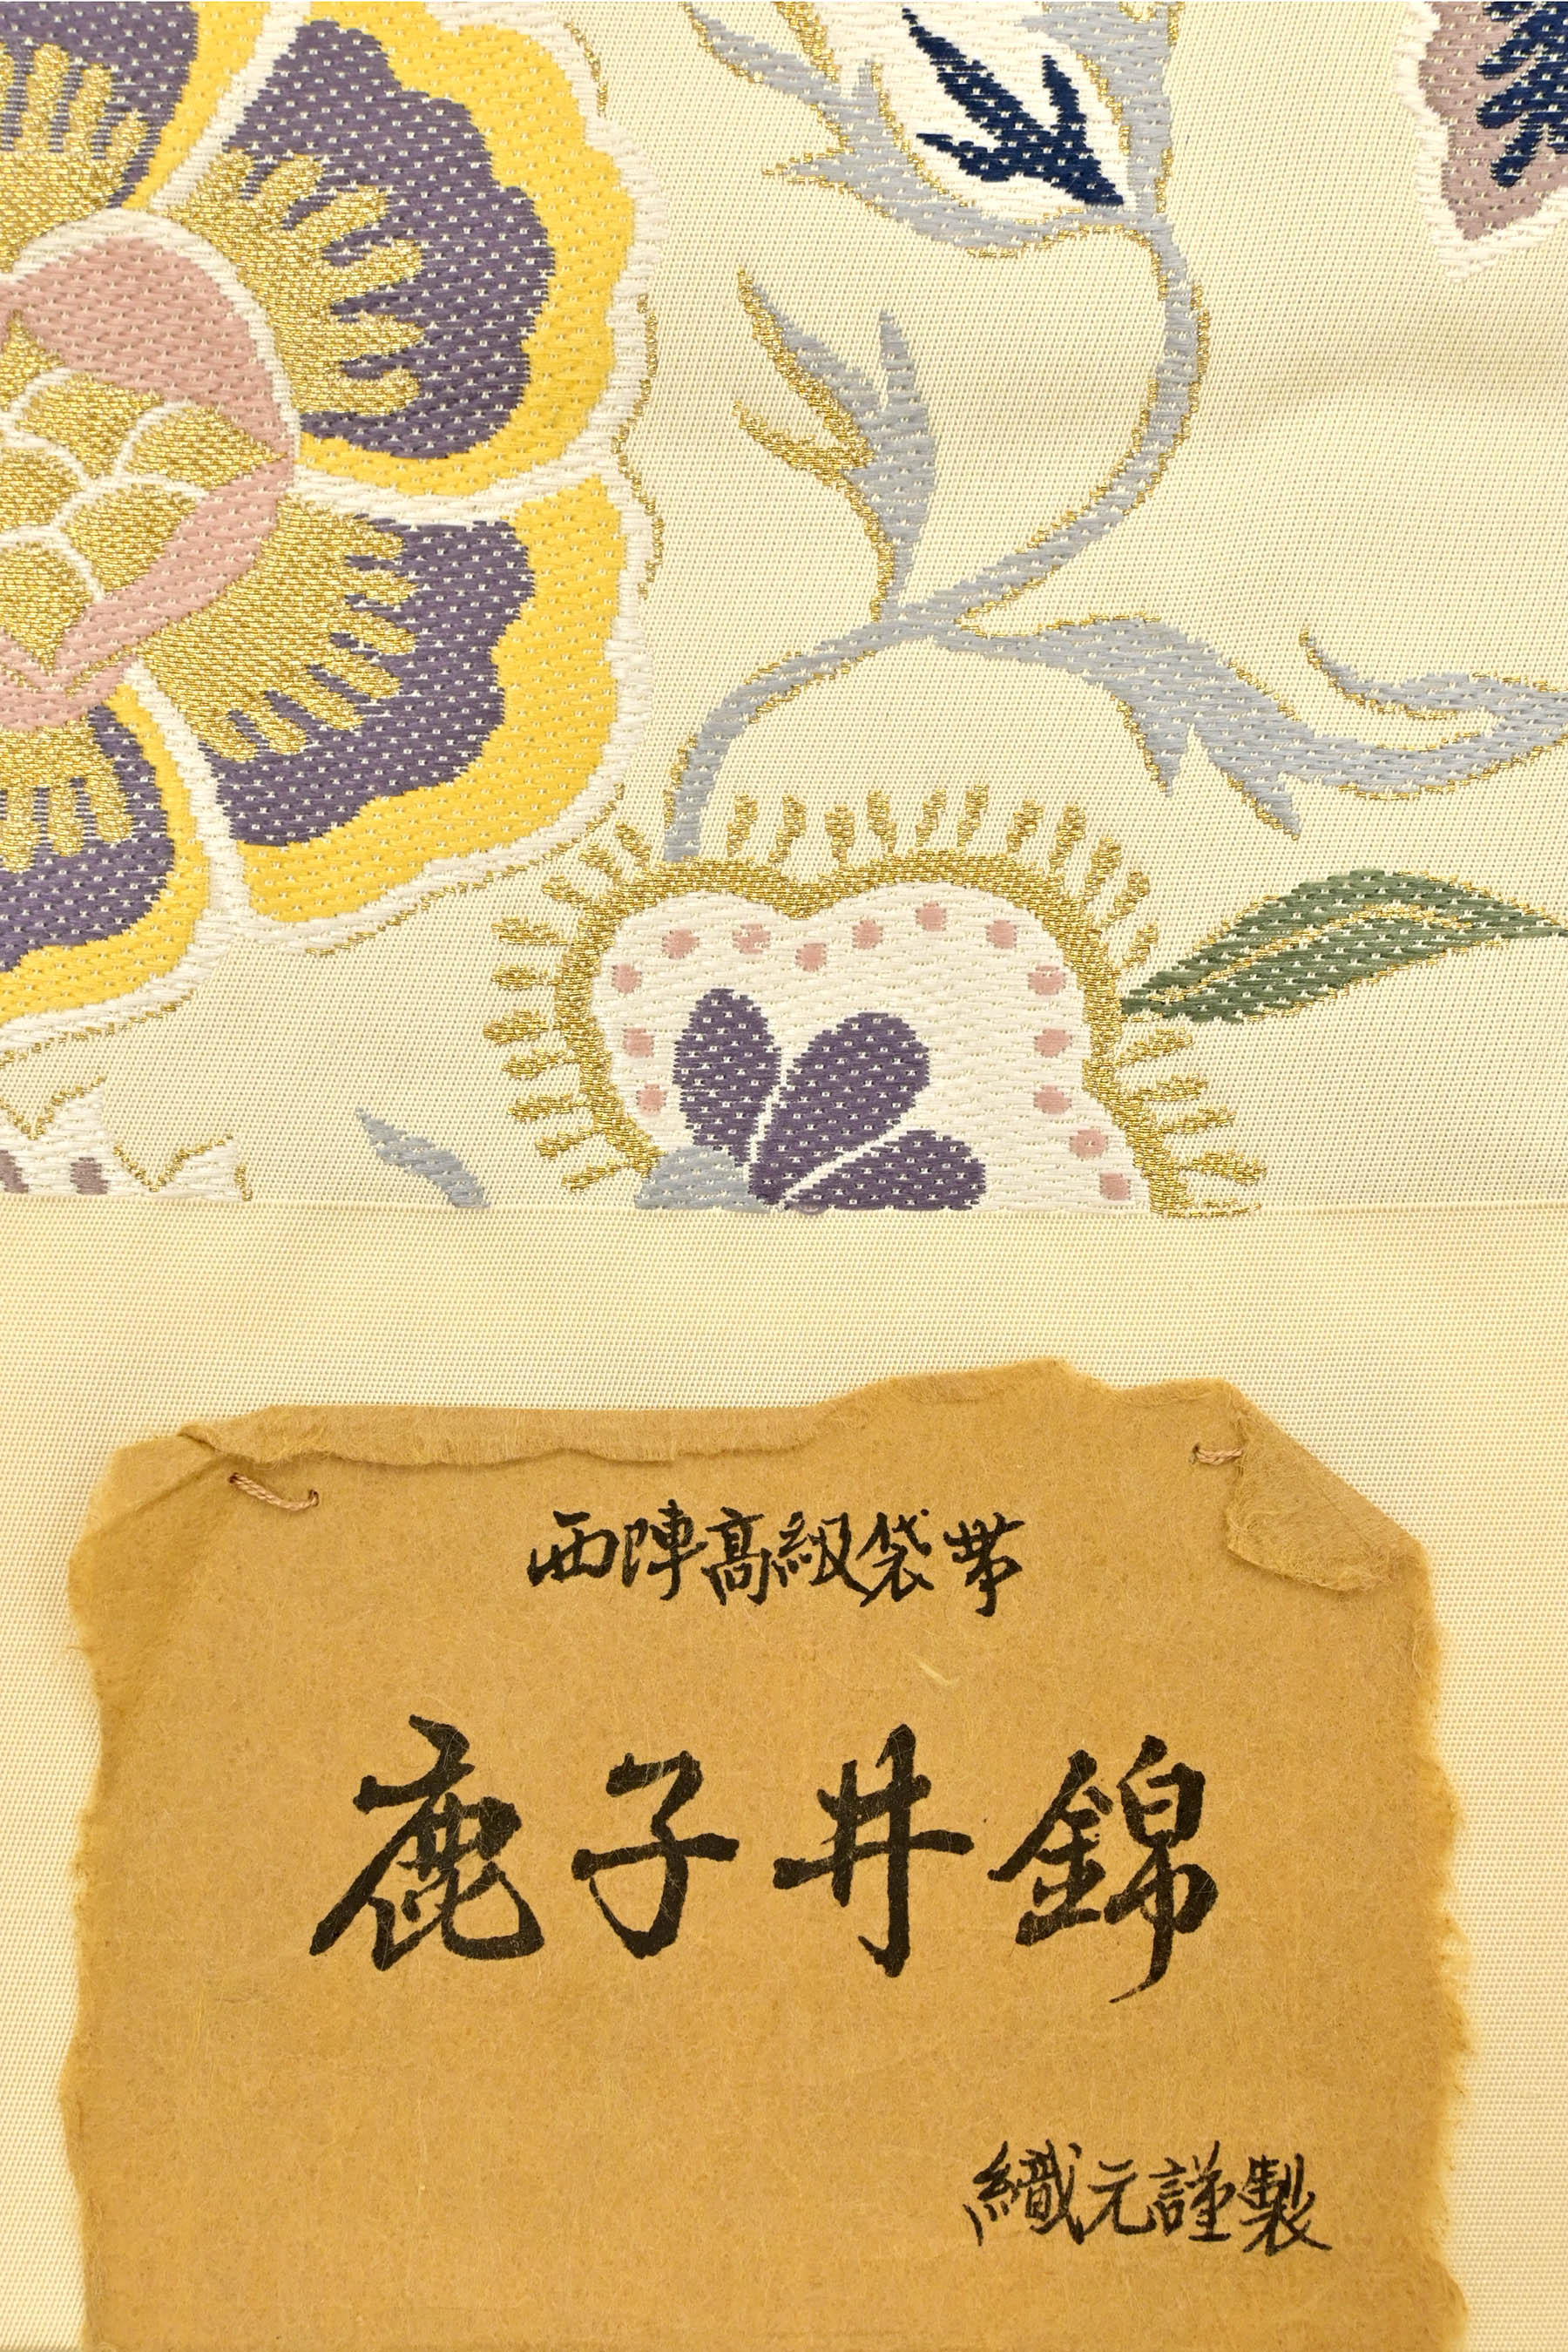 西陣高級袋帯
鹿子井錦
織元謹製